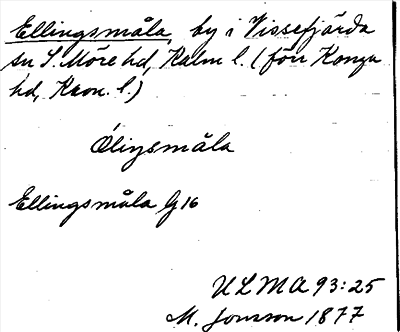 Ellingsmåla, by i Vissefjärda
sn S. Möre hd, Kalm. l. (förr Konga
hd, Kron. l.)
Óliŋsmåla
Ellingsmåla G16
ULMA 93:25
M. Jonsson 1877